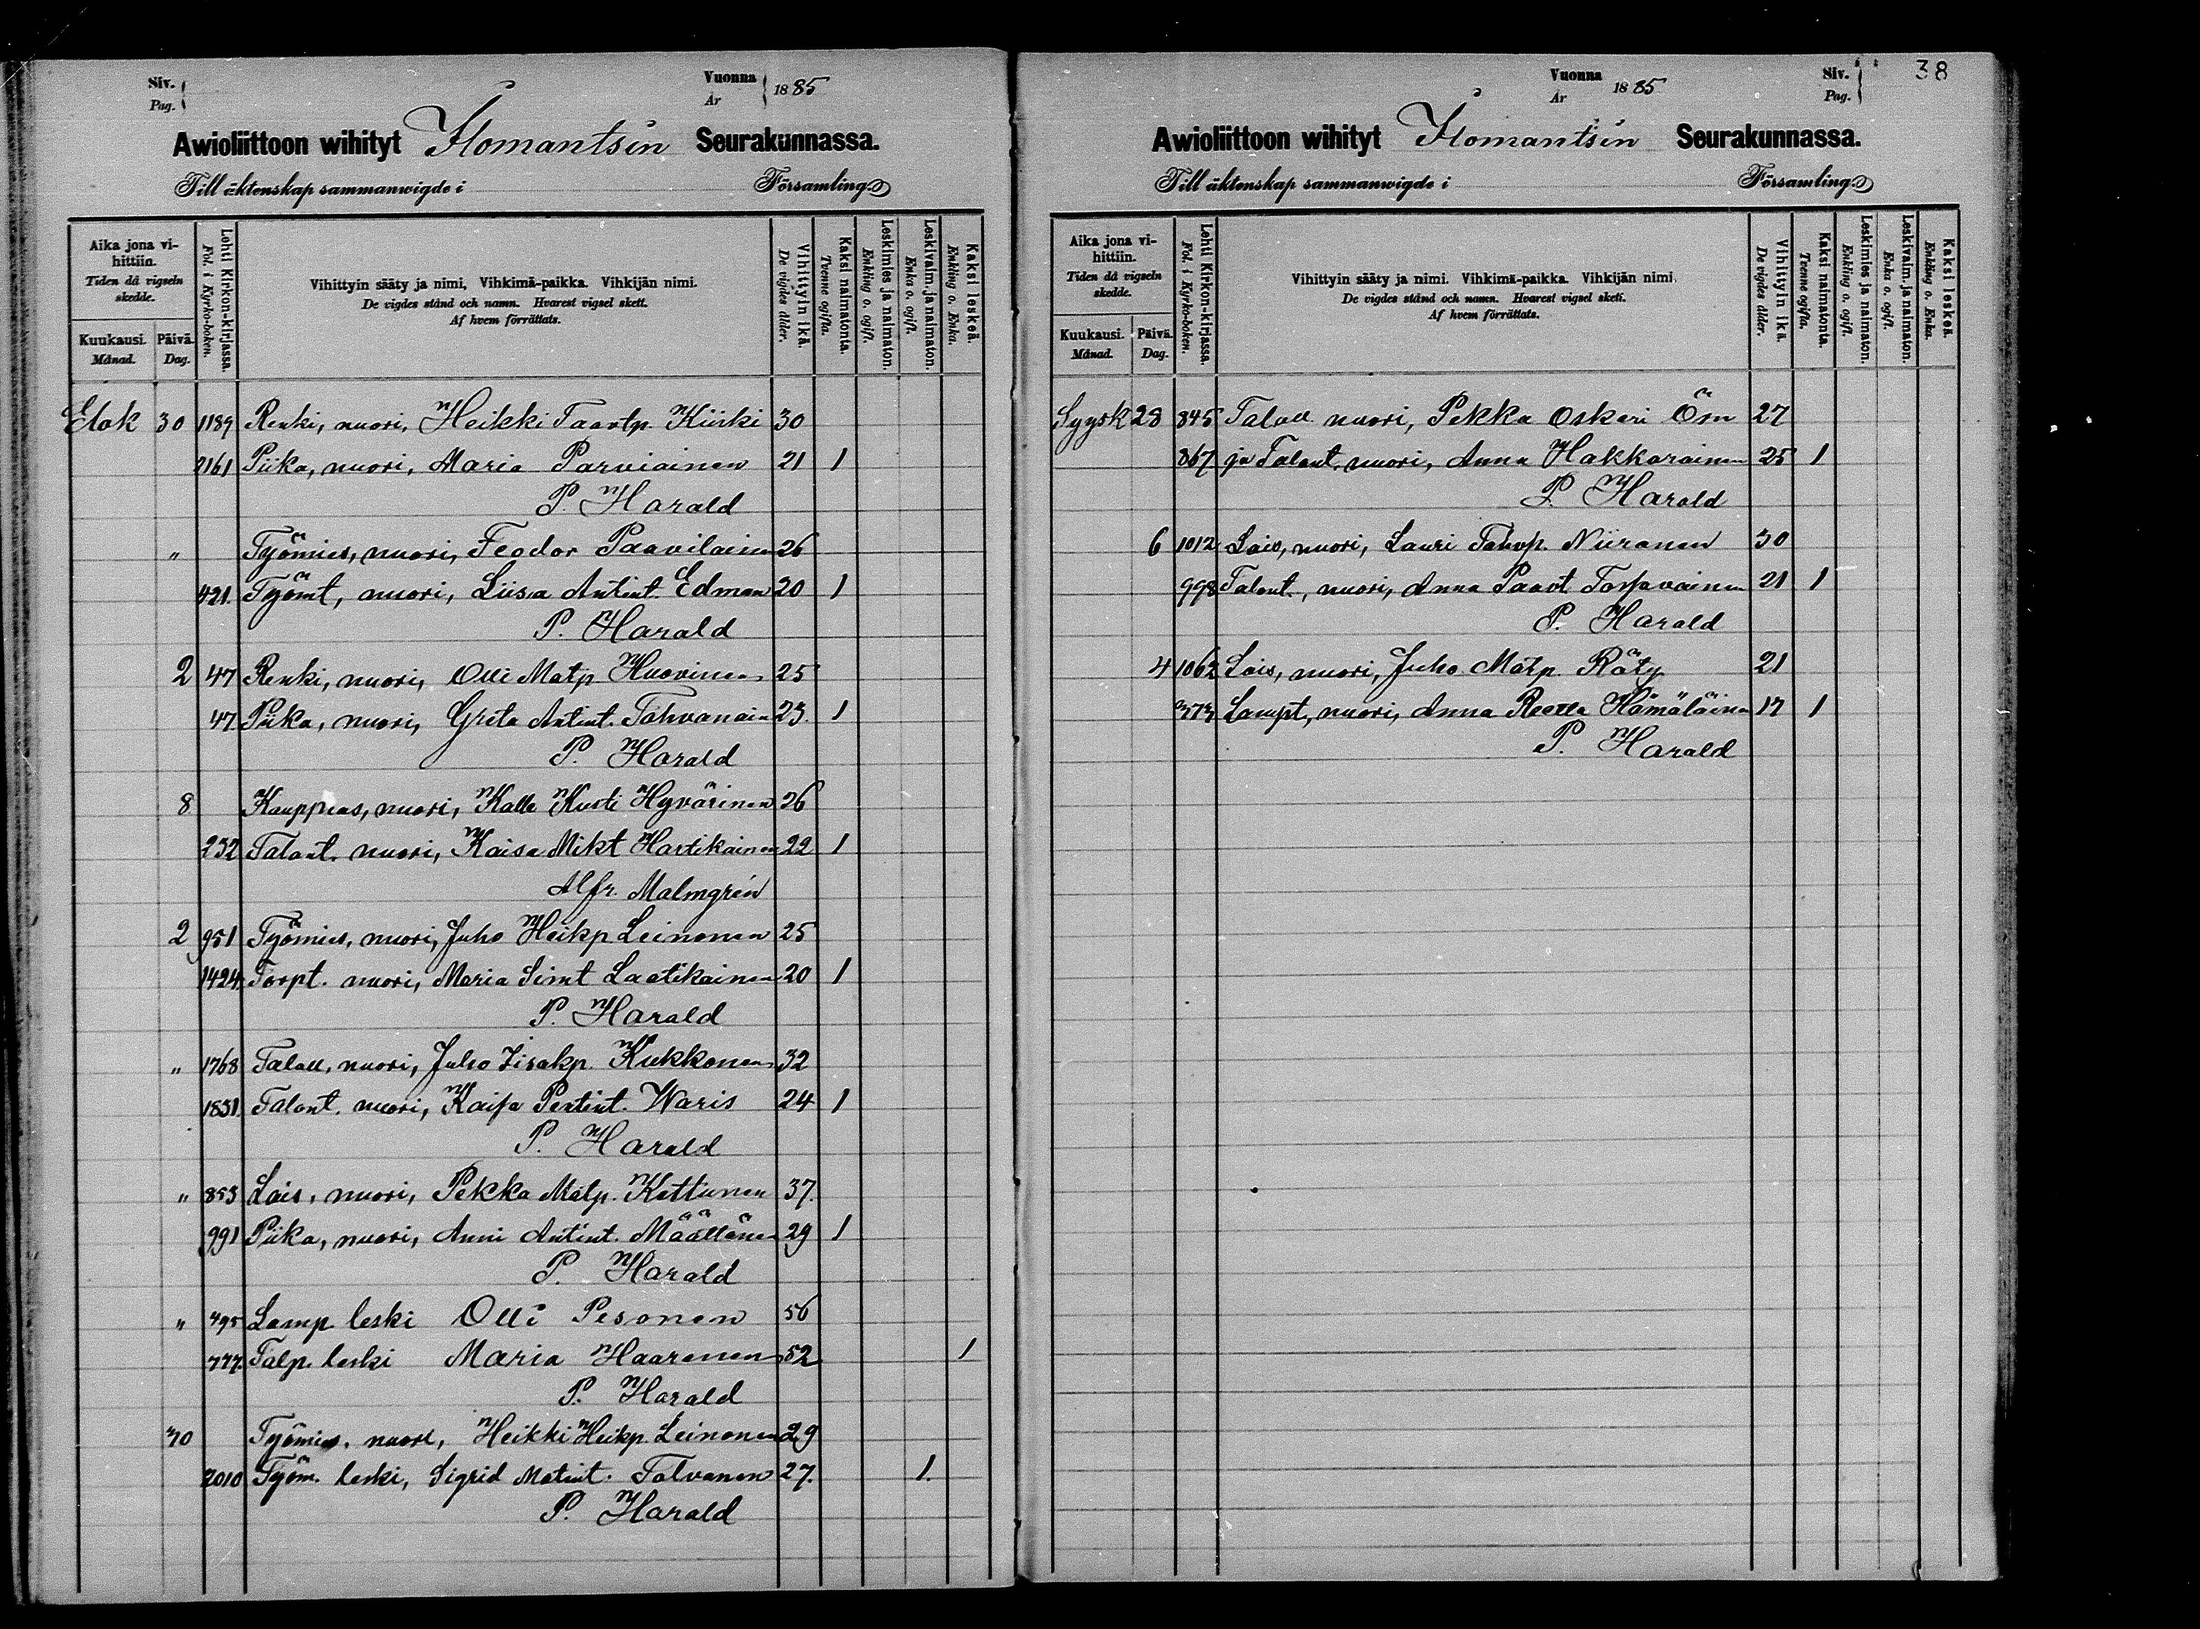 Siv.
Pag.
Vuonna
År 1885
Awioliittoon wihityt Ilomantsin Seurakunnassa.
Till äktenskap sammanwigde i Församling
Aika jona vihittiin.
Tiden då vigseln skedde.
Kuukausi.
Månad.
Päivä.
Dag.
Lehti Kirkon-kirjassa.
Fol. i Kyrko-boken.
Vihittyin sääty ja nimi, Vihkimä-paikka. Vihkijän nimi.
De vigdes stånd och namn. Hvarest vigsel skett.
Af hvem förrättats.
Vihittyin ikä.
De vigdes ålder.
Kaksi naimatonta.
Tvenne ogifta.
Leskimies ja naimaton.
Enkling o. ogift.
Leskivaim. ja naimaton.
Enka o. ogift.
Kaksi leskeä.
Enkling o. Enka.
Elok 30 1189 Renki, nuori, Heikki Taavtp Kiiski 30
2161 Piika, nuori, Maria Parviainen 21 1
P. Harald
" Työmies, nuori, Feodor Paavilainen 26
421. Työmt, nuori, Liisa Antint. Edman 20 1
P. Harald
2 47 Renki, nuori, Olli Matp Huovinen 25
47 Piika, nuori, Greta Antint. Tahvanain 23. 1
P. Harald
8 Kauppias, nuori, Kalle Kusti Hyvärinen 26
232 Talont. nuori, Kaisa Mikt Hartikainen 22 1
Alfr. Malmgrén
2 951 Työmies, nuori, Juho Heikp Leinonen 25
1424 Torpt. nuori, Maria Simt Laatikainen 20 1
P. Harald
" 1768 Talall, nuori, Juho Iisakp. Kukkonen 32
1831 Talont. nuori, Kaisa Pertint. Waris 24 1
P. Harald
" 853 Lois, nuori, Pekka Matp. Kettunen 37.
991 Piika, nuori, Anni Antint. Määttänen 29 1
P. Harald
" 495 Lamp. leski Olli Pesonen 56
777. Talp. leski Maria Haaranen 52 1
P. Harald
30 Työmies, nuori, Heikki Heikp. Leinonen 29
2010 Työm. leski, Sigrid Matint. Tolvanen 27. 1.
P. Harald
Vuonna
År 1885
Siv.
Pag.
38
Awioliittoon wihityt Ilomantsin Seurakunnassa.
Till äktenskap sammanwigde i Församling
Aika jona vihittiin.
Tiden då vigseln skedde.
Kuukausi.
Månad.
Päivä.
Dag.
Lehti Kirkon-kirjassa.
Fol. i Kyrko-boken.
Vihittyin sääty ja nimi. Vihkimä-paikka. Vihkijän nimi.
De vigdes stånd och namn. Hvarest vigsel skett.
Af hvem förrättats.
Vihittyin ikä.
De vigdes ålder.
Kaksi naimatonta.
Tvenne ogifta.
Leskimies ja naimaton.
Enkling o. ogift.
Leskivaim. ja naimaton.
Enka o. ogift.
Kaksi leskeä.
Enkling o. Enka.
Syysk 28 845 Talall nuori, Pekka Oskari 27
867 ja Talont. nuori, Anna Hakkarainen 25 1
P. Harald
6 1012 Lois, nuori, Lauri Tahvp. Niiranen 30
998 Talont., nuori, Anna Paavt Torvainen 21 1
P. Harald
4 1062 Lois, nuori, Juho Matp. Räty 21
373 Lampt, nuori, Anna Reetta Hämäläinen 17 1
P. Harald